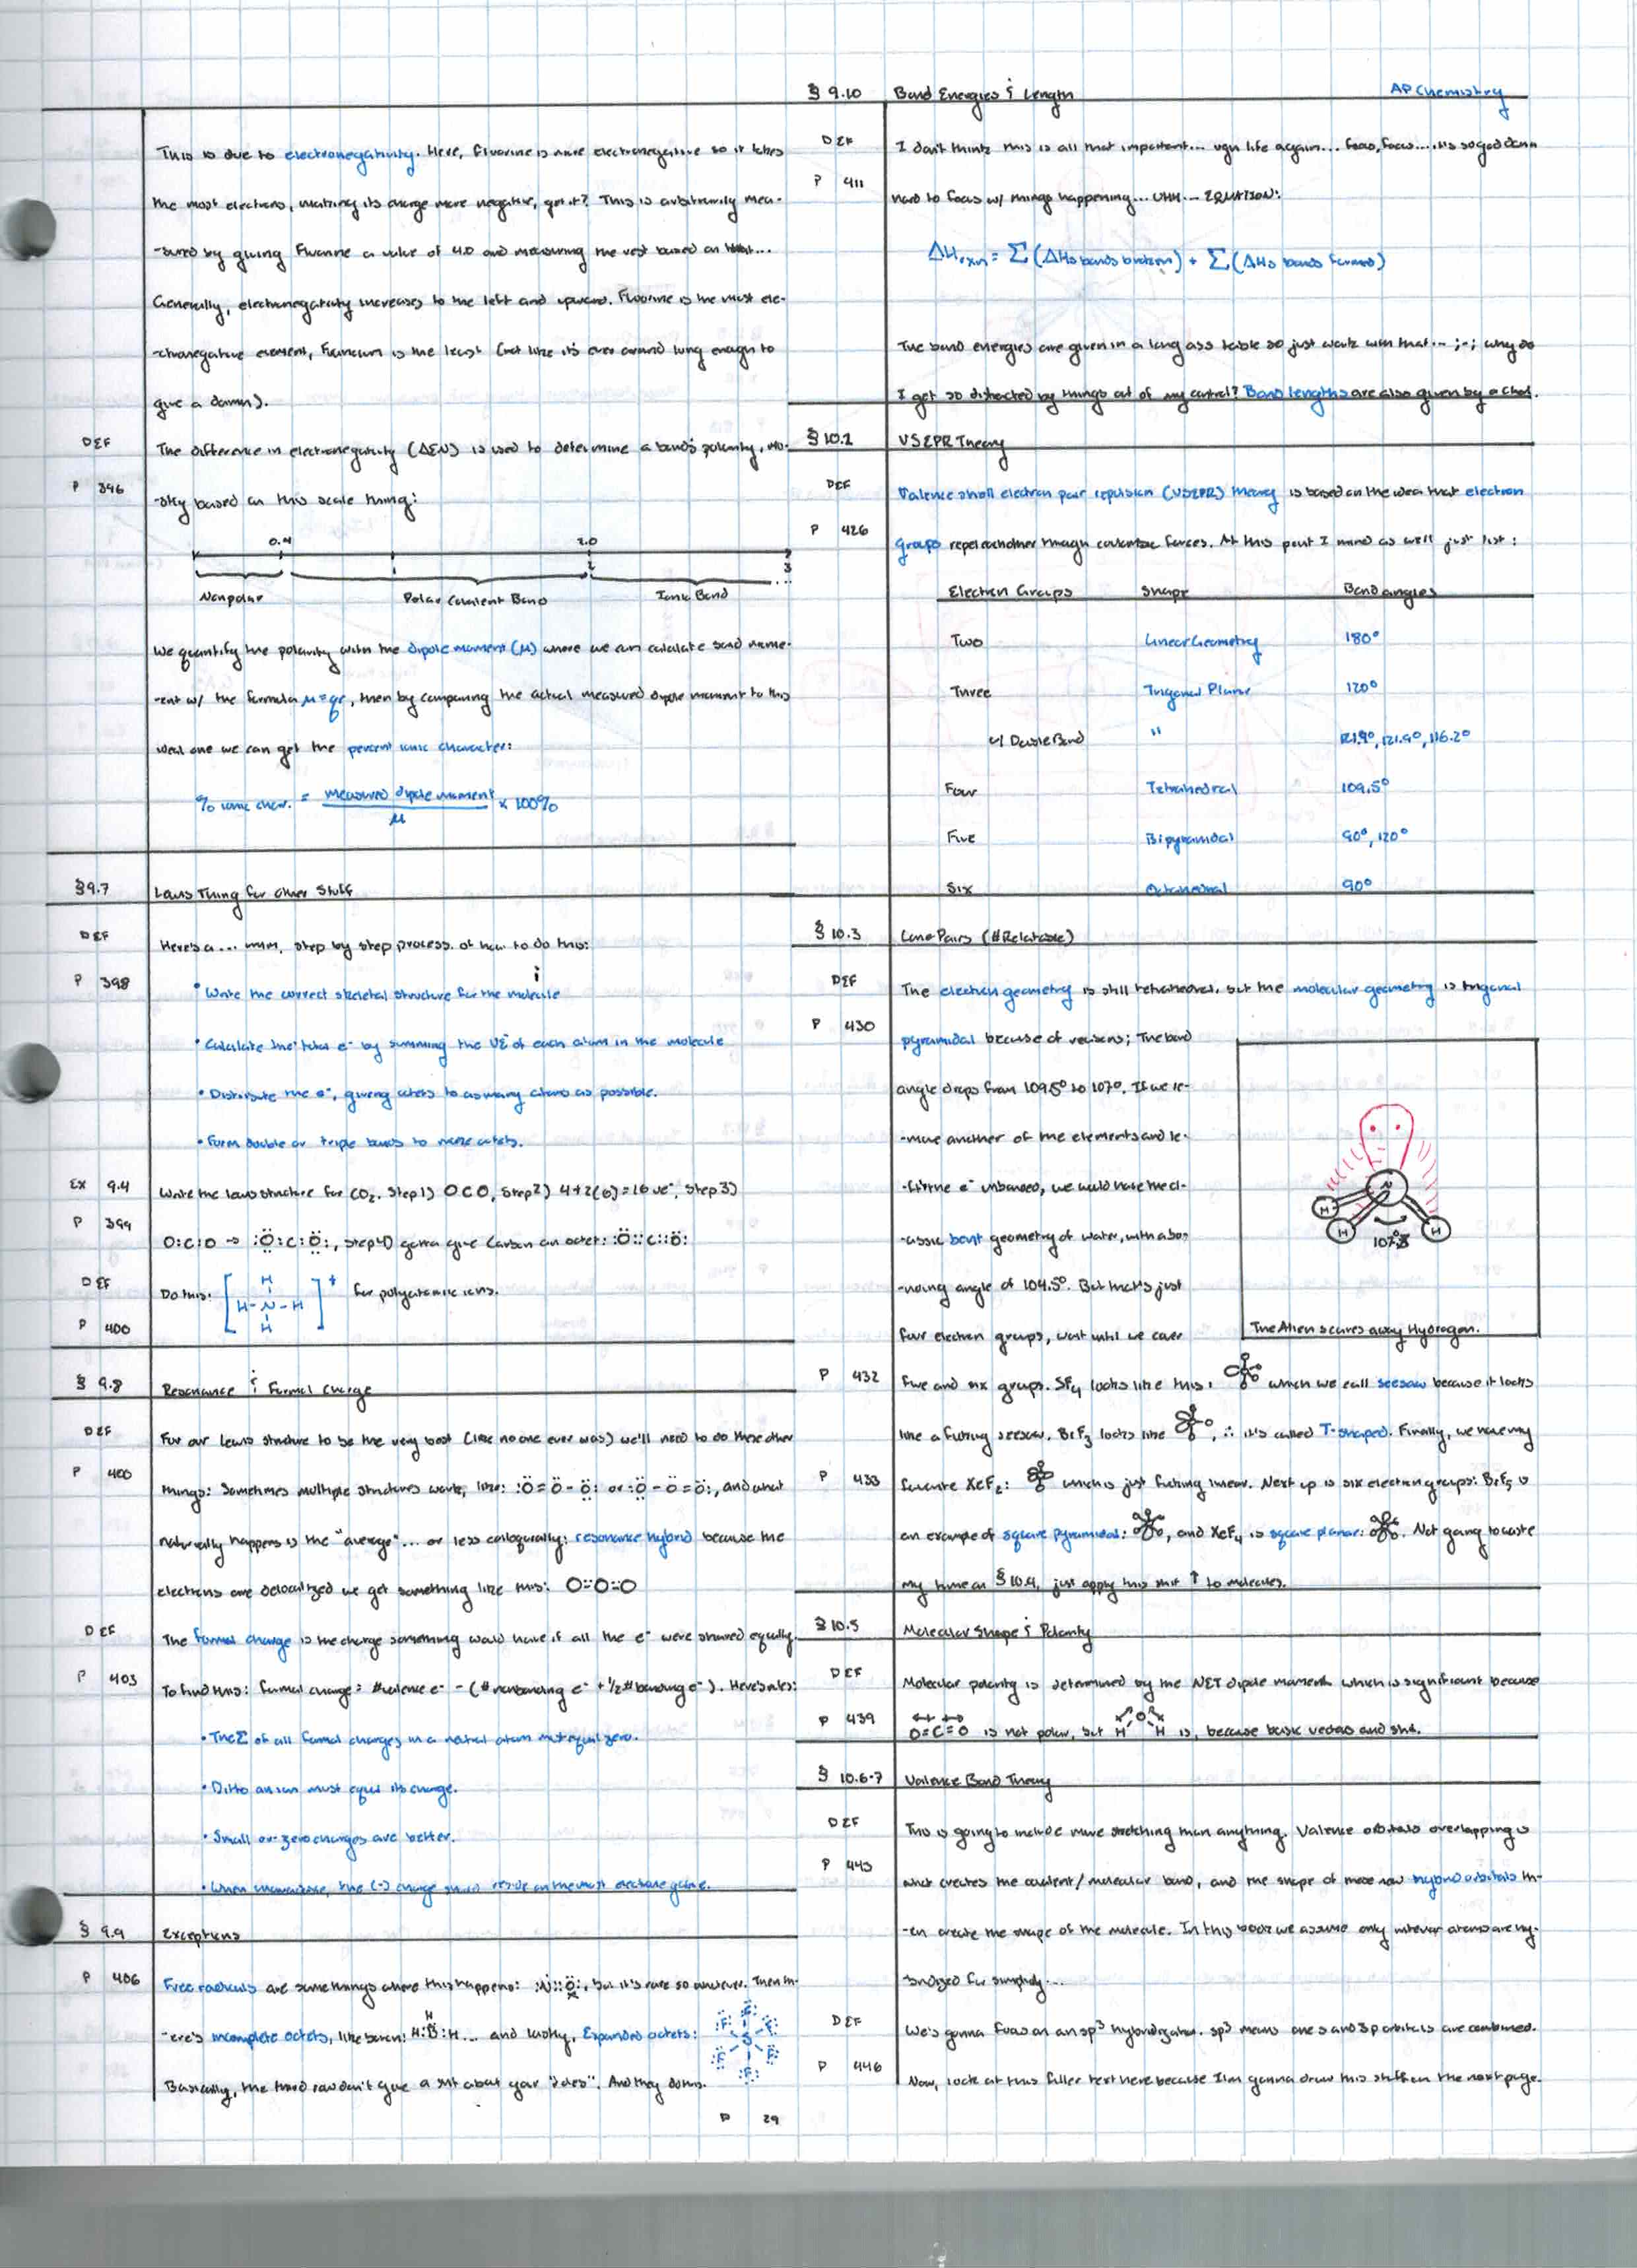 This is due to electronegativity. Here, Fluorine is more electronegative so it takes
the most electrons, making its charge more negative, get it? This is arbitrarily mea-
-sured by giving Fluorine a value of 4.0 and measuring the rest based on
Generally, electronegativity increases to the left and upward. Fluorine is the most ele-
-ctronegative element, Francium is the least (not like it's ever around long enough to
give a damn).
DEF
The difference in electronegativity (ΔEN) is used to determine a bond's polarity, mo-
P 396
-stly based on this scale thing:
0.4 2.0
1 2 3 ...
Nonpolar Polar Covalent Bond Ionic Bond
We quantify the polarity with the dipole moment (μ) where we can calculate said mome-
-ent w/ the formula μ=qr, then by comparing the actual measured dipole moment to this
ideal one we can get the percent ionic character:
% ionic char. = measured dipole moment / μ × 100%
§9.7 Lewis Thing for Other Stuff
DEF
Here's a... mmm, step by step process. of how to do this:
P 398
• Write the correct skeletal structure for the molecule
• Calculate the total e⁻ by summing the VE of each atom in the molecule
• Distribute the e⁻, giving octets to as many atoms as possible.
• Form double or triple bonds to make octets.
Ex 9.4 Write the Lewis structure for CO₂. Step 1) OCO, Step 2) 4+2(6)=16 ve⁻, Step 3)
P 399
O:C:O → :Ö:C:Ö:, Step 4) gotta give Carbon an octet: :Ö::C::Ö:
DEF
Do this: [H-N-H H H]⁺ for polyatomic ions.
P 400
§ 9.8 Resonance & Formal Charge
DEF
For our Lewis structure to be the very best (like no one ever was) we'll need to do these other
P 400
things: Sometimes multiple structures work, like: :Ö=Ö-Ö: or :Ö-Ö=Ö:, and what
naturally happens is the "average"... or less colloquially: resonance hybrid because the
electrons are delocalized we get something like this: O=O=O
DEF
The formal charge is the charge something would have if all the e⁻ were shared equally.
P 403
To find this: formal charge = #valence e⁻ - (#nonbonding e⁻ + ½#bonding e⁻). Here's rules:
• The Σ of all formal charges in a neutral atom must equal zero.
• Ditto an ion must equal its charge.
• Small or zero charges are better.
• When unavoidable, the (-) charge should reside on the most electronegative.
§ 9.9 Exceptions
P 406
Free radicals are some things where this happens: :N::Ö:, but it's rare so whatever. Then th-
-ere's incomplete octets, like boron: H:B:H H ... and lastly, Expanded octets:
F F F F F F S
Basically, the third row don't give a shit about your "rules". And they do this.
P 29
AP Chemistry
§ 9.10 Bond Energies & Length
DEF
I don't think this is all that important... ugh life again... focus, focus... it's so god damn
P 411
hard to focus w/ things happening... uhh... EQUATION:
ΔHrxn = Σ(ΔHs bonds broken) + Σ(ΔHs bonds formed)
The bond energies are given in a long ass table so just work with that... ;-; why do
I get so distracted by things out of my control? Bond lengths are also given by a chart.
§ 10.2 VSEPR Theory
DEF
Valence shell electron pair repulsion (VSEPR) theory is based on the idea that electron
P 426
groups repel each other through coulombic forces. At this point I mind as well just list:
Electron Groups Shape Bond angles
Two Linear Geometry 180°
Three Trigonal Planar 120°
w/ Double Bond " 121.9°, 121.9°, 116.2°
Four Tetrahedral 109.5°
Five Bipyramidal 90°, 120°
Six Octahedral 90°
§ 10.3 Lone Pairs (#Relatable)
DEF
The electron geometry is still tetrahedral, but the molecular geometry is trigonal
P 430
pyramidal because of reasons; The bond
angle drops from 109.5° to 107°. If we re-
-move another of the elements and le-
-ft the e⁻ unbonded, we would have the cl-
-assic bent geometry of water, with a bo-
-nding angle of 104.5°. But that's just
four electron groups, wait until we cover
N
H H H
107°
The Alien scares away Hydrogen.
P 432
five and six groups. SF₄ looks like this: which we call seesaw because it looks
like a fucking seesaw. BrF₃ looks like , ∴ it's called T-shaped. Finally, we have my
P 433
favorite XeF₂: which is just fucking linear. Next up is six electron groups: BrF₅ is
an example of square pyramidal: , and XeF₄ is square planar: . Not going to waste
my time on § 10.4, just apply this shit ↑ to molecules.
§ 10.5 Molecular Shape & Polarity
DEF
Molecular polarity is determined by the NET dipole moment which is significant because
P 439
O=C=O is not polar, but H O H is, because basic vectors and shit.
§ 10.6-7 Valence Bond Theory
DEF
This is going to include more sketching than anything. Valence orbitals overlapping is
P 443
what creates the covalent/molecular bond, and the shape of these new hybrid orbitals th-
-en create the shape of the molecule. In this book we assume only interior atoms are hy-
-bridized for simplicity...
DEF
We's gonna focus on an sp³ hybridization. sp³ means one s and 3 p orbitals are combined.
P 446
Now, look at this filler text here because I'm gonna draw this stuff on the next page.